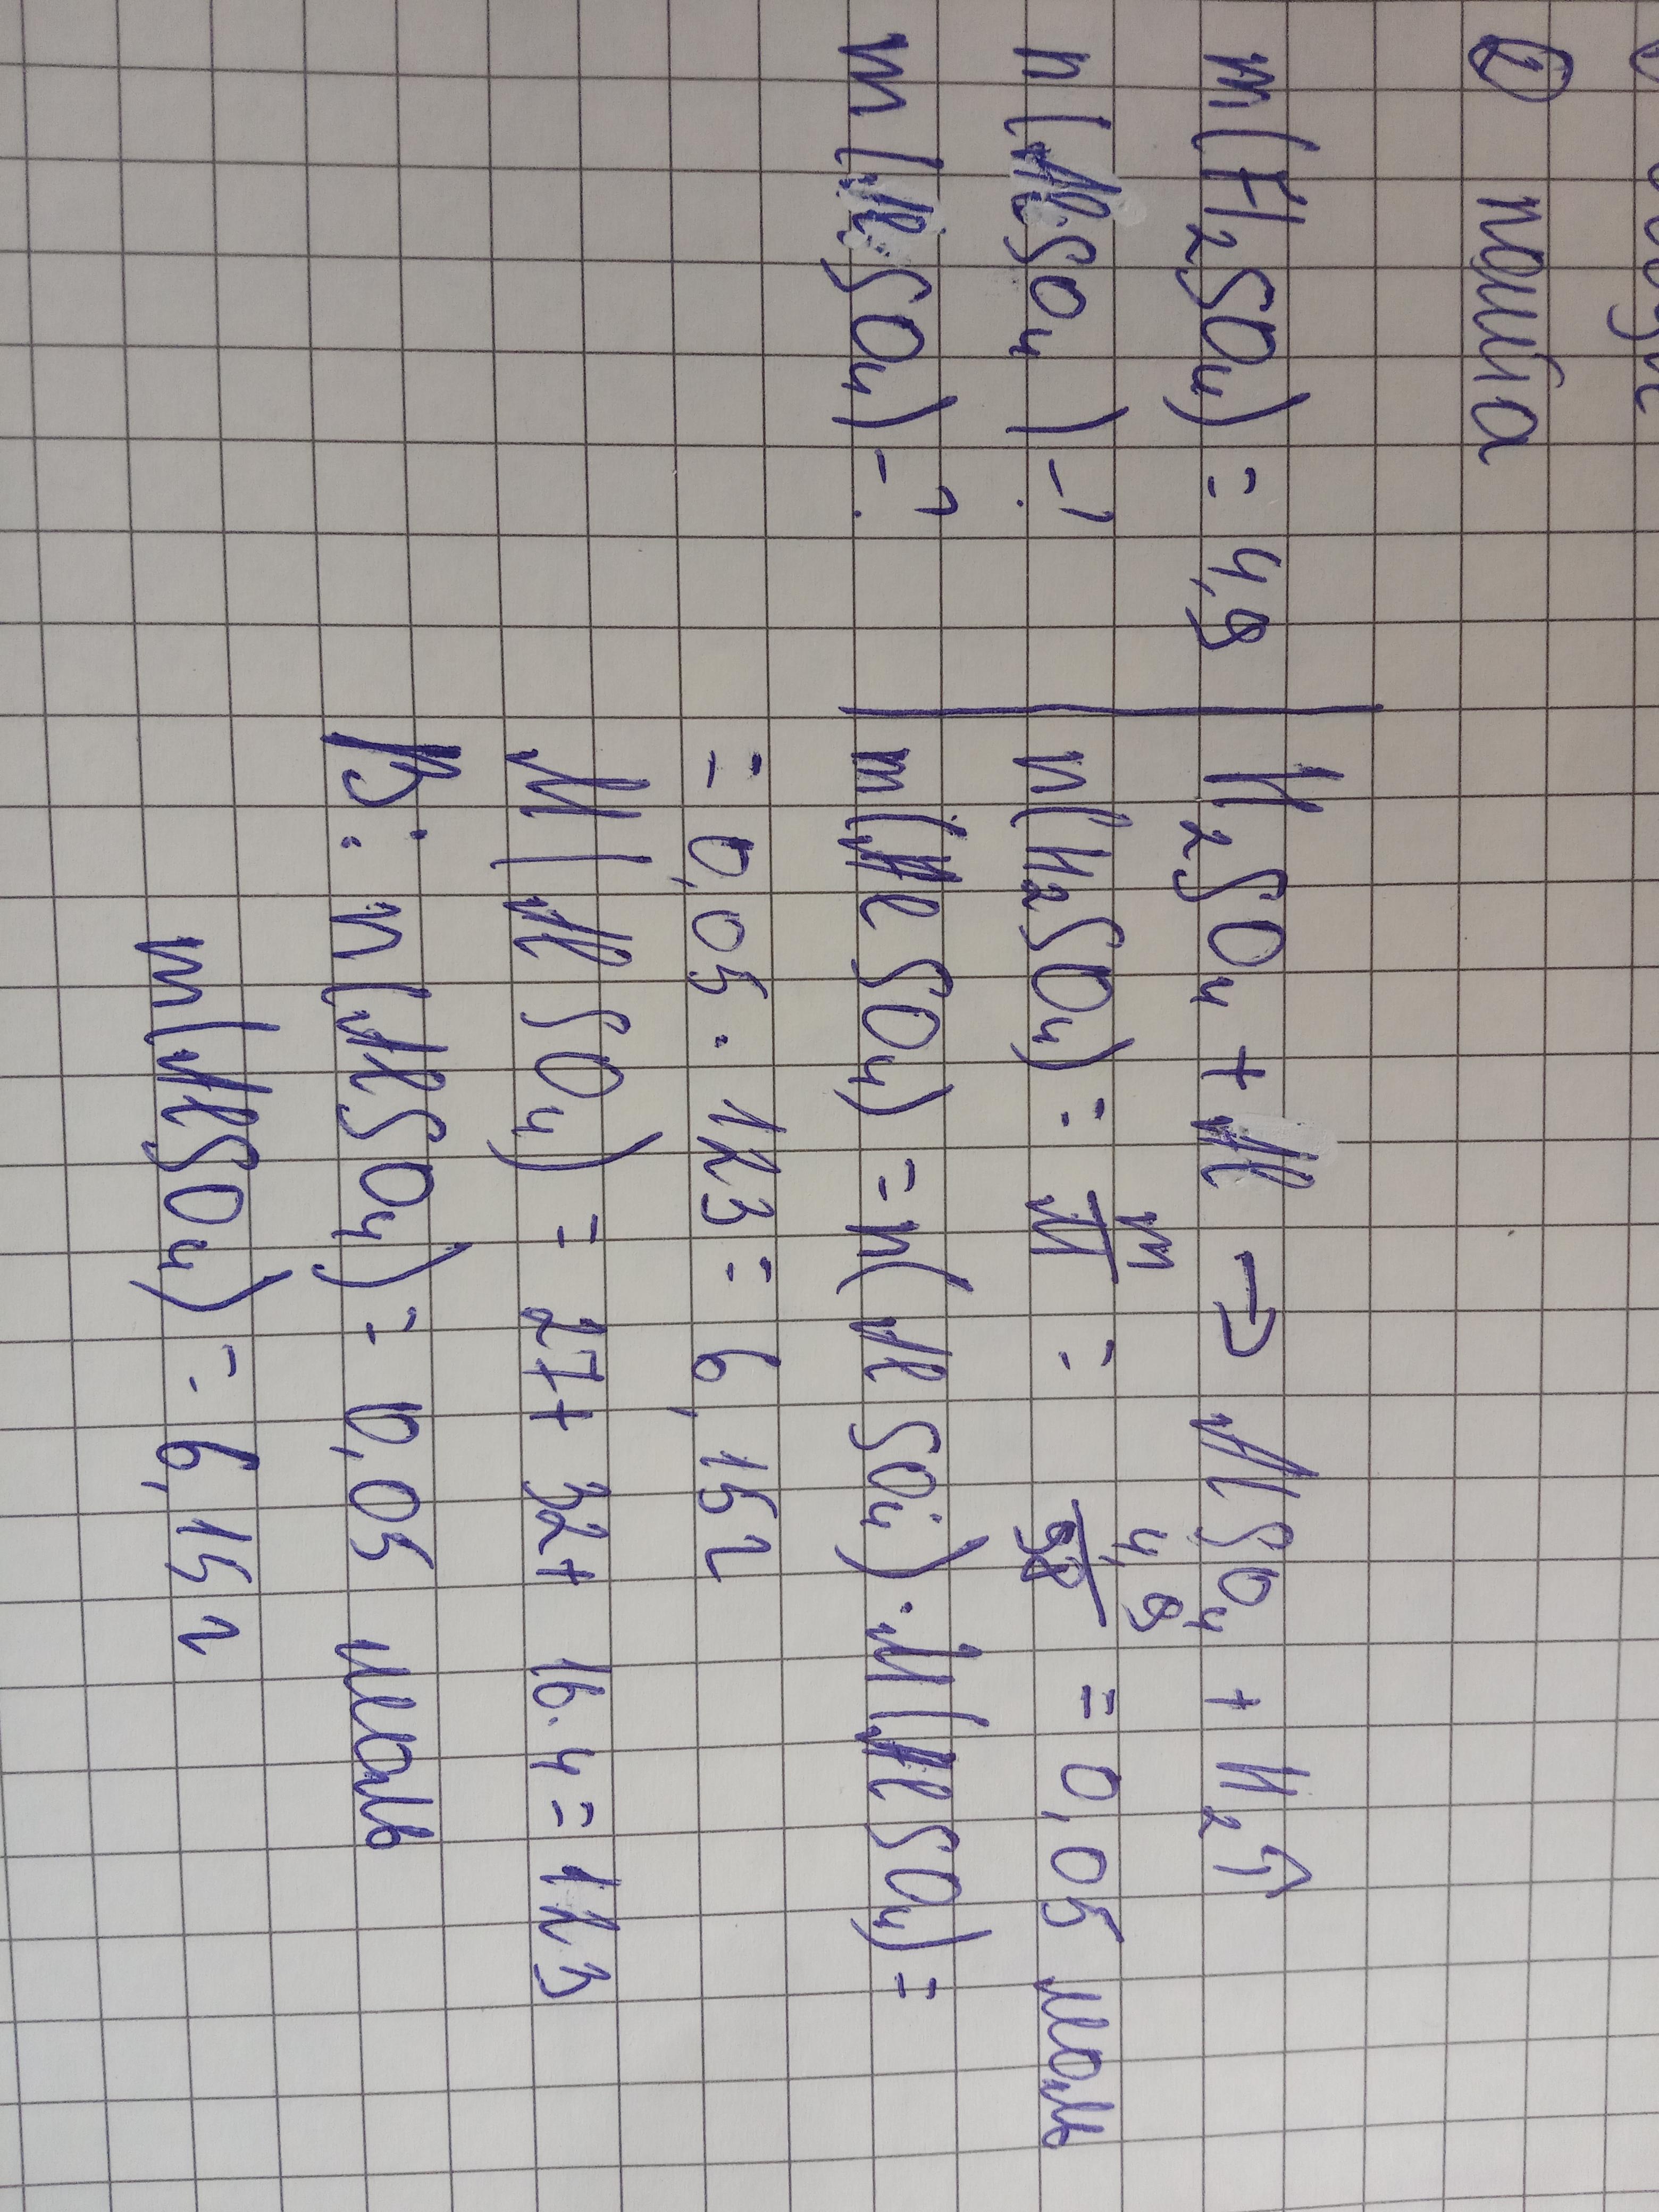 ②
m(H₂SO₄) = 4,9
n(AlSO₄) - ?
m(AlSO₄) - ?
H₂SO₄ + Al → AlSO₄ + H₂↑
n(H₂SO₄) = m/M = 4,9/98 = 0,05 моль
m(AlSO₄) = n(AlSO₄) · M(AlSO₄) =
= 0,05 · 123 = 6,15 г
M(AlSO₄) = 27 + 32 + 16·4 = 123
В: n(AlSO₄) = 0,05 моль
m(AlSO₄) = 6,15 г